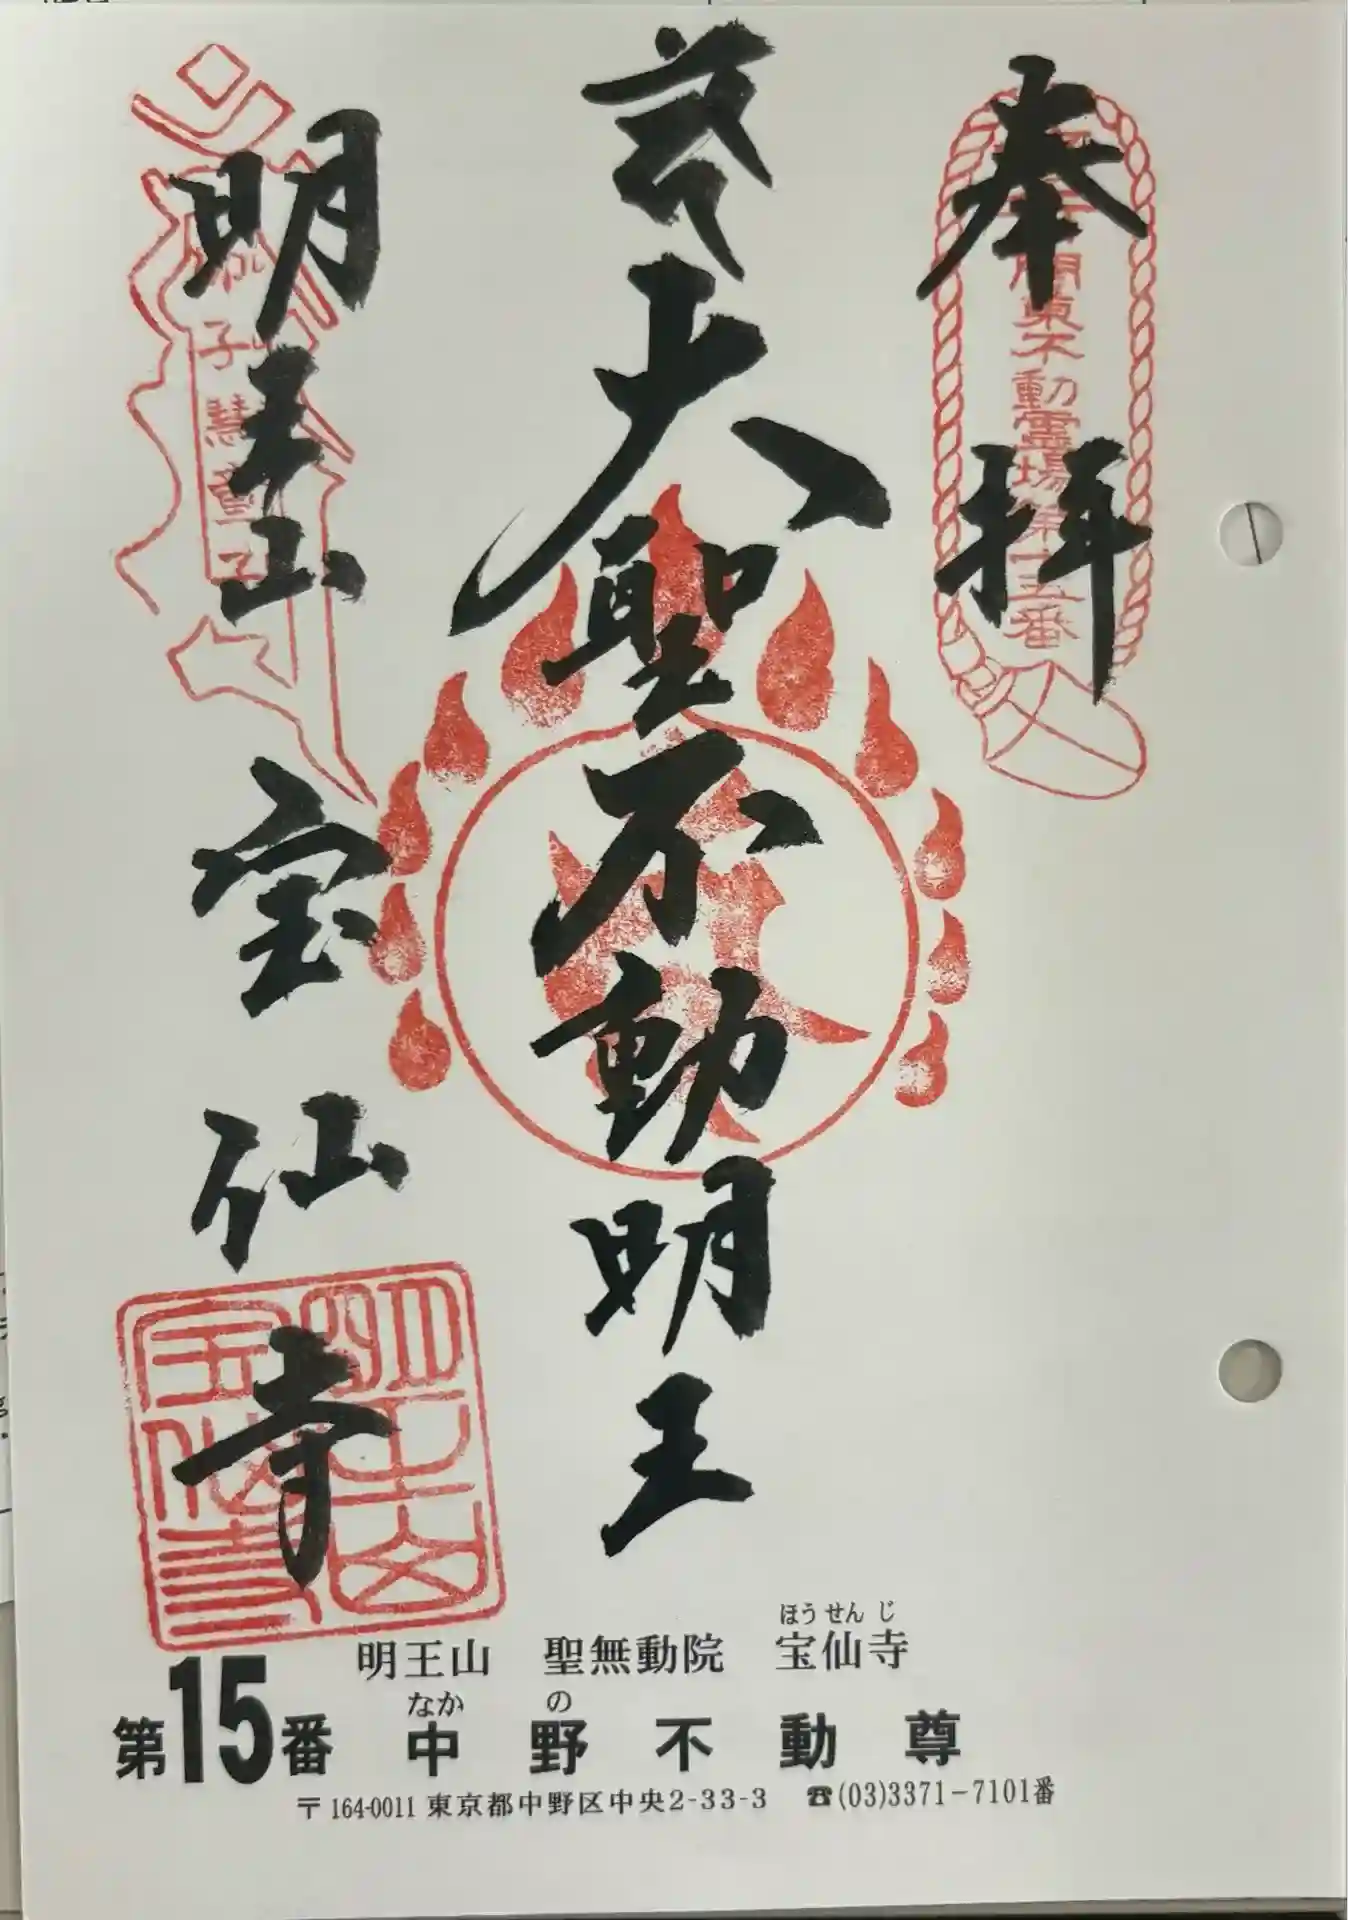 奉拝
関東不動霊場第十五番
大聖不動明王
明王山
宝仙寺
子慧童子
明王山宝仙寺
ほうせんじ
明王山 聖無動院 宝仙寺
なかの
第15番 中野不動尊
〒164-0011 東京都中野区中央2-33-3 ☎(03)3371-7101番